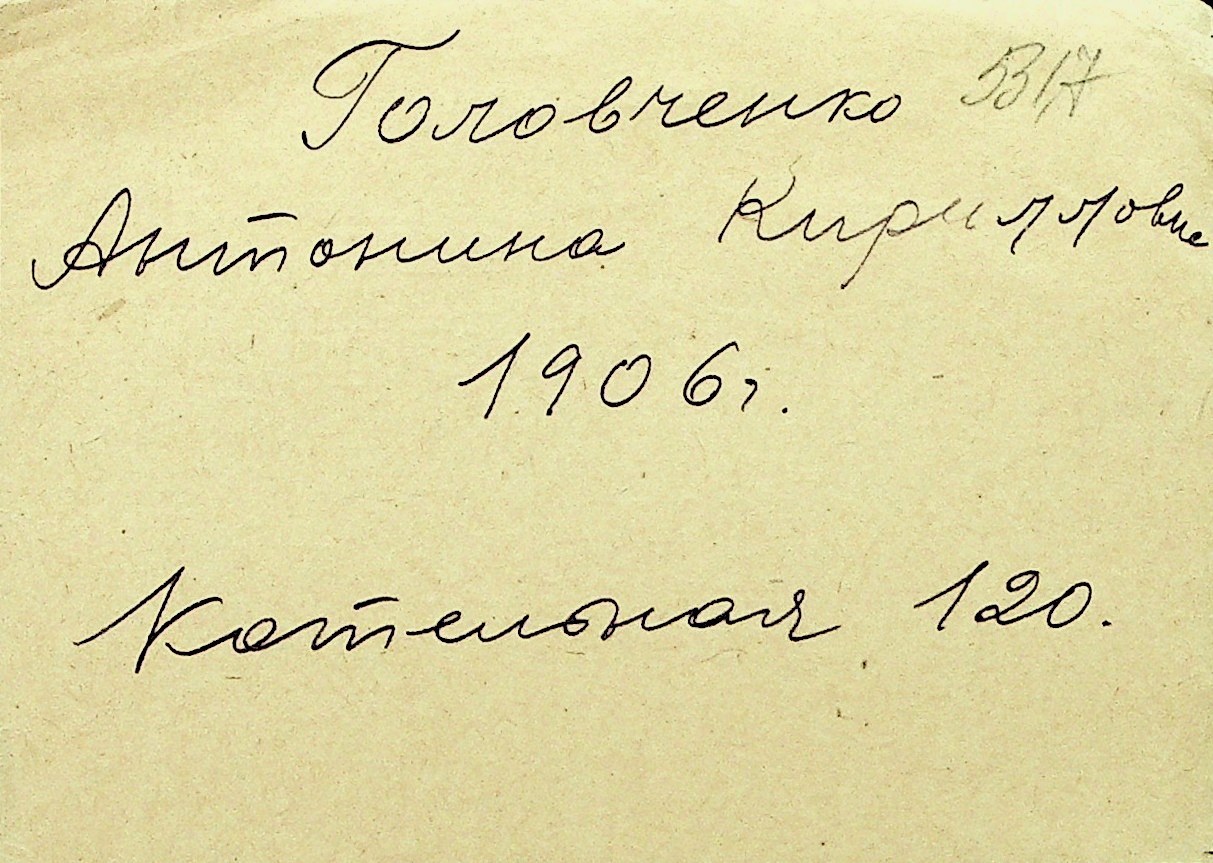 Головченко 5317
Антонина Кирилловна
1906г.
Котельная 120.